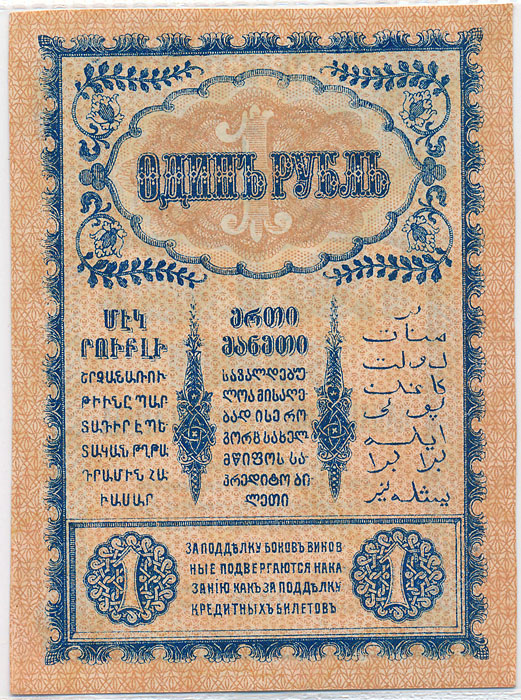 1
ОДИНЪ РУБЛЬ
ՄԷԿ
ՐՈՒԲԼԻ
ՇՐՋԱՆԱՌՈՒ
ԹԻՒՆԸ ՊԱՐ
ՏԱԴԻՐ Է ՊԵ
ՏԱԿԱՆ ԹՂԹԱ
ԴՐԱՄԻՆ ՀԱ
ՒԱՍԱՐ
ერთი
მანეთი
სავალდებუ
ლოა მისაღე
ბად ისე რო
გორც სახელ
მწიფოს სა
კრედიტო ბი
ლეთი
بر
منات
دولت
ایله
1
ЗА ПОДДѢЛКУ БОНОВЪ ВИНОВ
НЫЕ ПОДВЕРГАЮТСЯ НАКА
ЗАНІЮ КАКЪ ЗА ПОДДѢЛКУ
КРЕДИТНЫХЪ БИЛЕТОВЪ
1